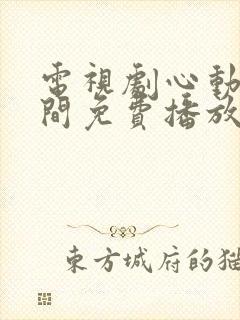 電視劇心動
間免費播放
東方城府的貓